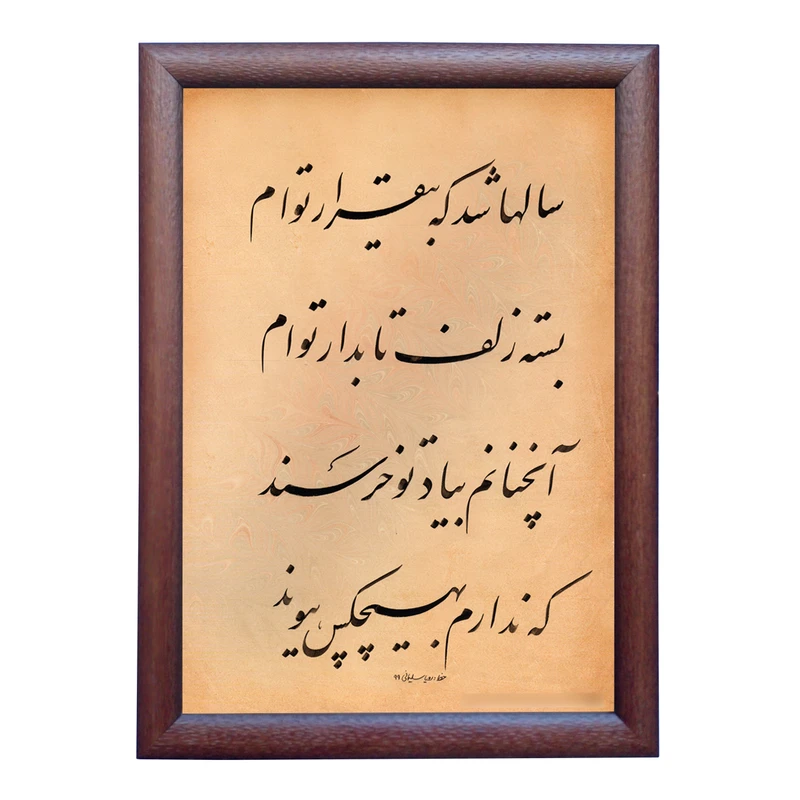 سالها شد که بیقرار توام
بسته زلف تابدار توام
آنچنانم بیاد تو خرسند
که ندارم بهیچکس پیوند
خط: رویا سلیمانی ۹۹